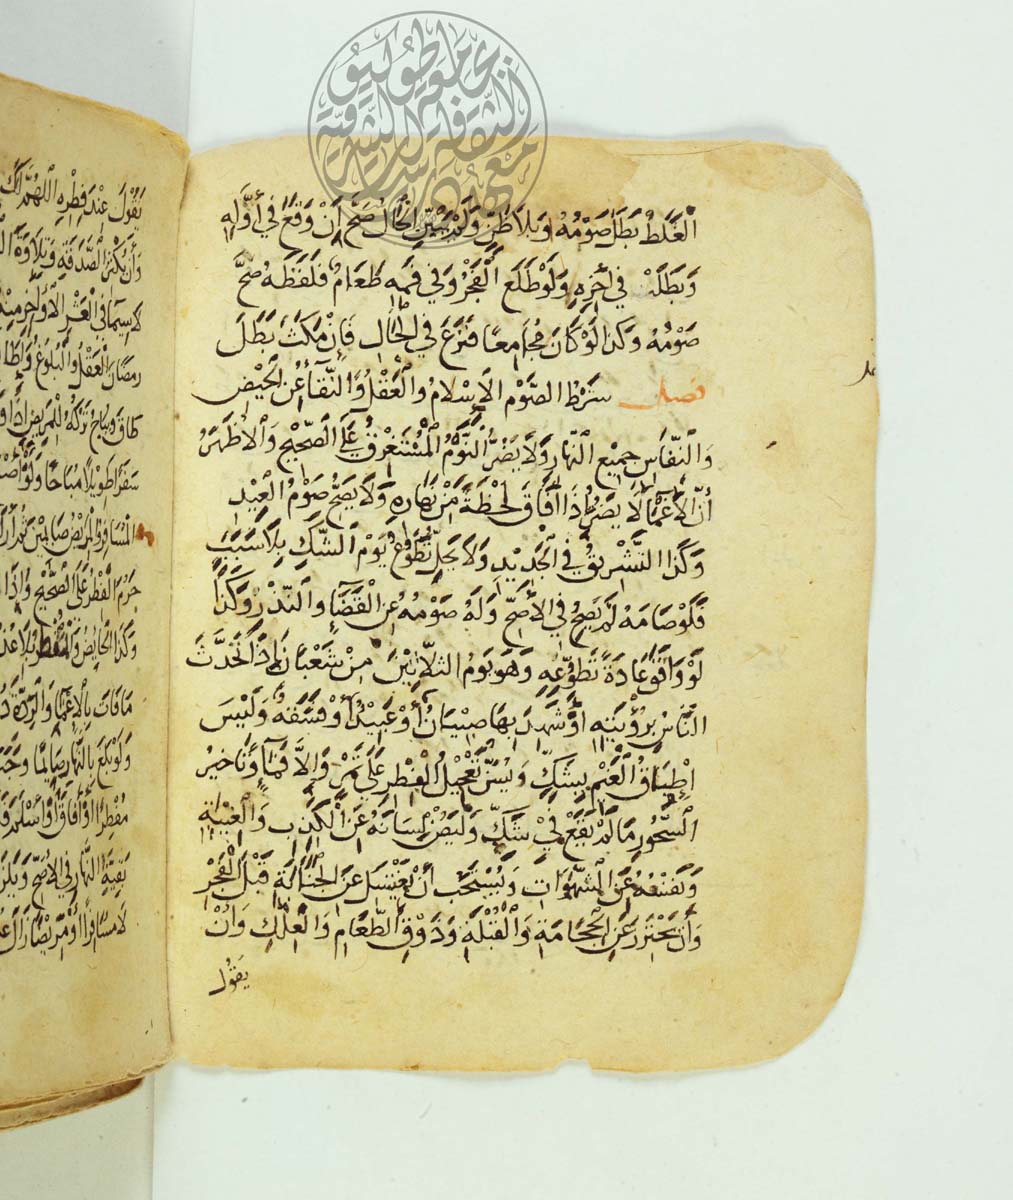 الْغَلَطُ بَطَلَ صَوْمُهُ اَوْ بِلَا ظَنٍّ وَلَمْ يَبِنِ الْحَالُ صَحَّ اِنْ وَقَعَ فِي اَوَّلِهِ
وَبَطَلَ فِي اٰخِرِهِ وَلَوْ طَلَعَ الْفَجْرُ وَفِي فَمِهِ طَعَامٌ فَلَفَظَهُ صَحَّ
صَوْمُهُ وَكَذَا لَوْ كَانَ مُجَامِعًا فَنَزَعَ فِي الْحَالِ فَاِنْ مَكَثَ بَطَلَ
فصل شَرْطُ الصَّوْمِ الْاِسْلَامُ وَالْعَقْلُ وَالنَّقَآءُ عَنِ الْحَيْضِ
وَالنِّفَاسِ جَمِيْعِ النَّهَارِ وَلَا يَضُرُّ النَّوْمُ الْمُسْتَغْرِقُ عَلَى الصَّحِيْحِ وَالْاَظْهَرُ
اَنَّ الْاِغْمَآءَ لَا يَضُرُّ اِذَا اَفَاقَ لَحْظَةً مِنْ نَهَارِهِ وَلَا يَصِحُّ صَوْمُ الْعِيْدِ
وَكَذَا التَّشْرِيْقُ فِي الْجَدِيْدِ وَلَا يَحِلُّ تَطَوُّعُ يَوْمِ الشَّكِّ بِلَا سَبَبٍ
فَلَوْ صَامَهُ لَمْ يَصِحَّ فِي الْاَصَحِّ وَلَهُ صَوْمُهُ عَنِ الْقَضَآءِ وَالنَّذْرِ وَكَذَا
لَوْ وَافَقَ عَادَةَ تَطَوُّعِهِ وَهُوَ يَوْمُ الثَّلَاثِيْنَ مِنْ شَعْبَانَ اِذَا تَحَدَّثَ
النَّاسُ بِرُؤْيَتِهِ اَوْ شَهِدَ بِهَا صِبْيَانٌ اَوْ عَبِيْدٌ اَوْ فَسَقَةٌ وَلَيْسَ
اِطْبَاقُ الْغَيْمِ بِشَكٍّ وَيُسَنُّ تَعْجِيْلُ الْفِطْرِ عَلَى تَمْرٍ وَاِلَّا فَمَآءٍ وَتَاخِيْرُ
السَّحُوْرِ مَا لَمْ يَقَعْ فِيْ شَكٍّ وَلْيَصُنْ لِسَانَهُ عَنِ الْكَذِبِ وَالْغِيْبَةِ
وَنَفْسَهُ عَنِ الشَّهَوَاتِ وَيُسْتَحَبُّ اَنْ يَغْتَسِلَ عَنِ الْجَنَابَةِ قَبْلَ الْفَجْرِ
وَاَنْ يَحْتَرِزَ عَنِ الْحِجَامَةِ وَالْقُبْلَةِ وَذَوْقِ الطَّعَامِ وَالْعِلْكِ وَاَنْ
يَقُوْلَ
يَقُوْلَ عِنْدَ فِطْرِهِ اللّٰهُمَّ لَكَ
وَاَنْ يُكْثِرَ الصَّدَقَةَ وَتِلَاوَةَ
لَاسِيَّمَا فِي الْعَشْرِ الْاَوَاخِرِ مِنْهُ
رمضان الْعَقْلُ وَالْبُلُوْغُ وَاِطَا
طَاقَ وَيُبَاحُ تَرْكُهُ لِلْمَرِيْضِ اِذَا
سَفَرًا طَوِيْلًا مُبَاحًا وَلَوْ
الْمُسَافِرُ وَالْمَرِيْضُ صَائِمَيْنِ ثُمَّ
حَرُمَ الْفِطْرُ عَلَى الصَّحِيْحِ وَاِذَا
وَكَذَا الْحَائِضُ وَالْمُفْطِرُ بِلَا
مَا فَاتَ بِالْاِغْمَآءِ وَالرِّدَّةِ
وَلَوْ بَلَغَ بِالنَّهَارِ صَائِمًا
مُفْطِرًا اَوْ اَفَاقَ اَوْ اَسْلَمَ
بَقِيَّةِ النَّهَارِ فِي الْاَصَحِّ
لَا مُسَافِرًا اَوْ مَرِيْضًا زَالَ